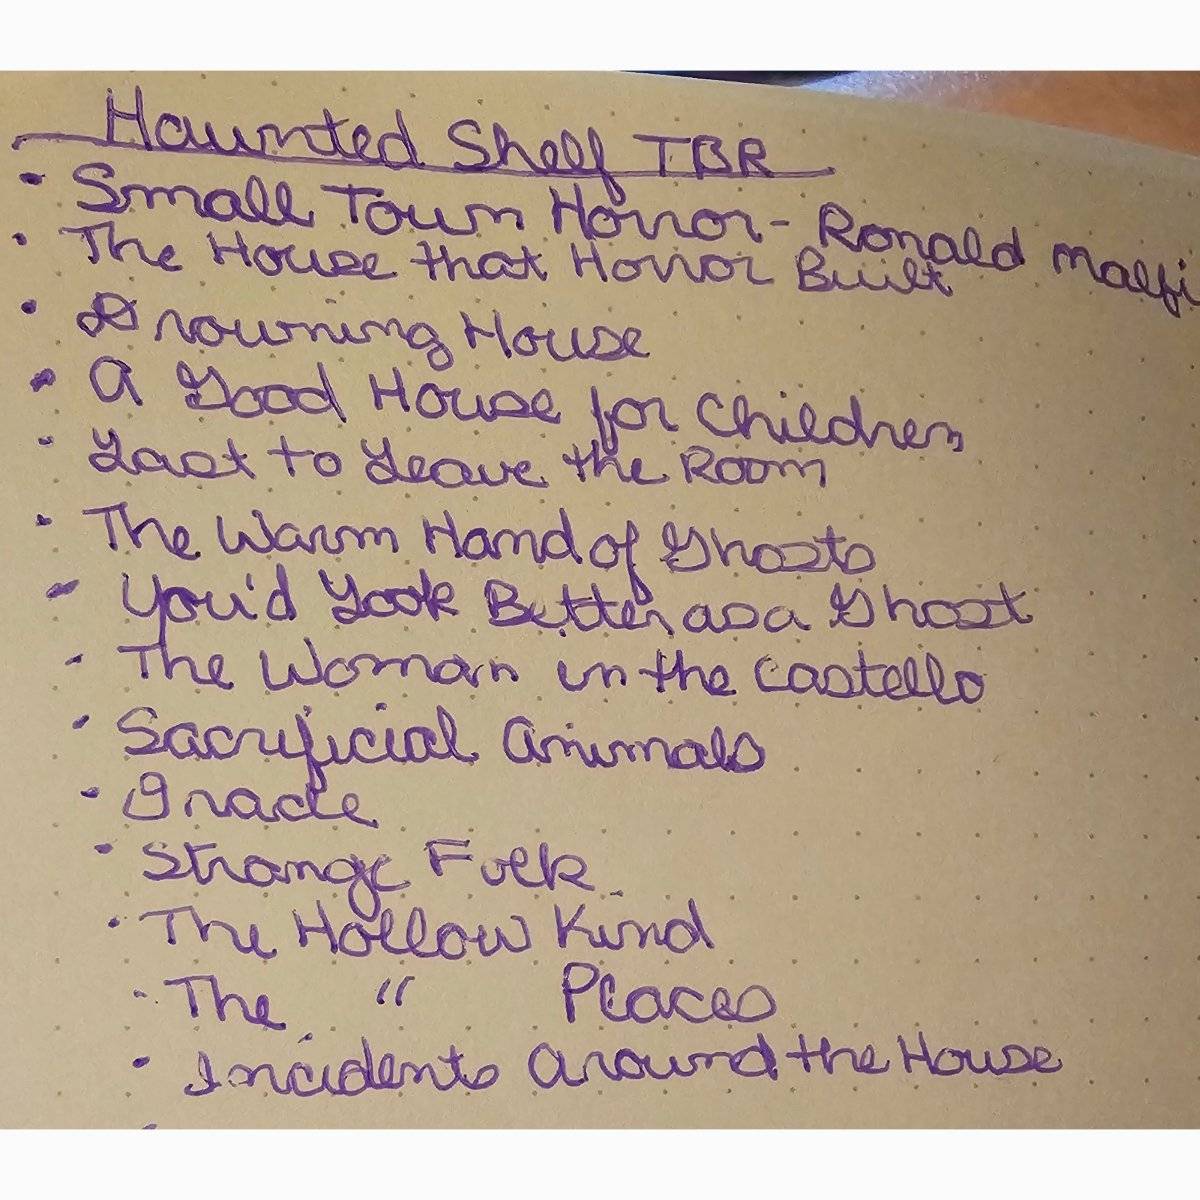 Haunted Shelf TBR
• Small Town Horror - Ronald Malfi
• The House that Horror Built
• Drowning House
• A Good House for Children
- Last to Leave the Room
• The Warm Hand of Ghosts
- You'd Look Better as a Ghost
- The Woman in the Castello
• Sacrificial Animals
- Gracie
• Strange Folk
• The Hollow Kind
- The " Places
• Incidents Around the House